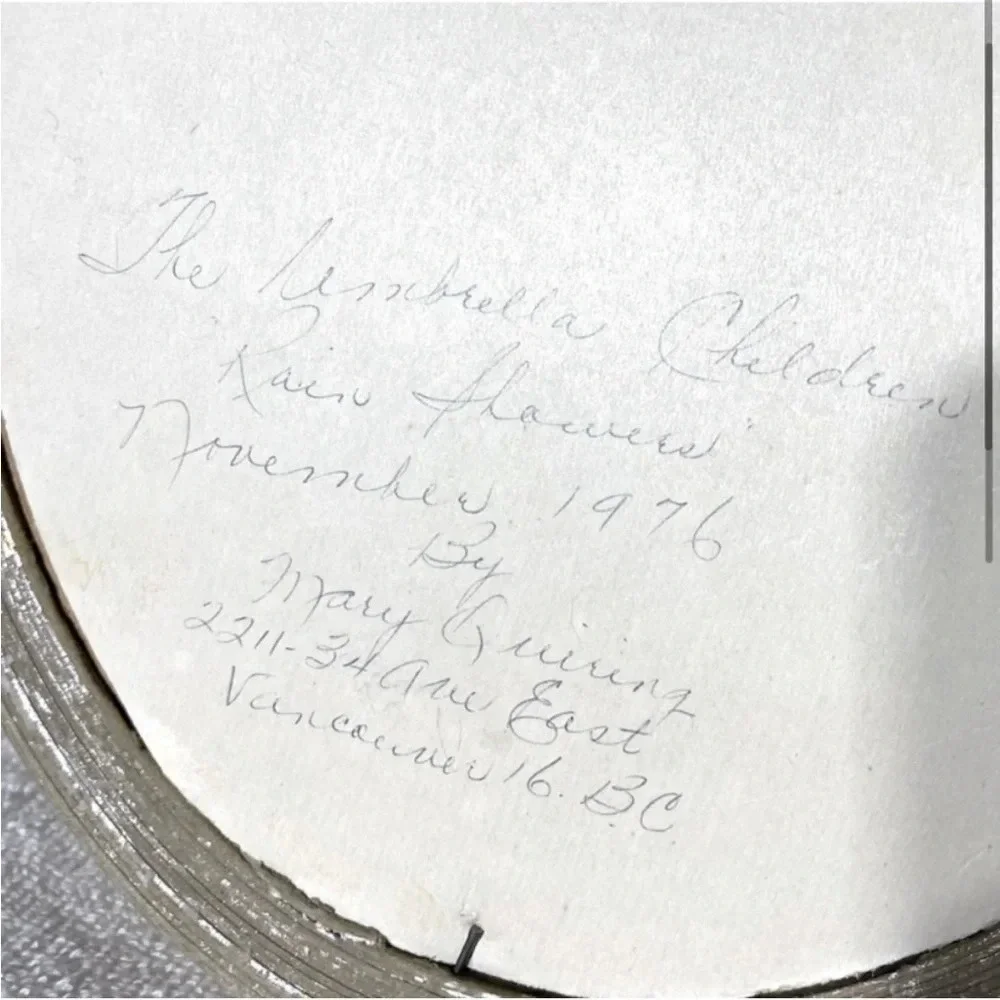 The Umbrella Children
"Rain Showers"
November 1976
By
Mary Quiring
2211-34 Ave East
Vancouver 16. BC